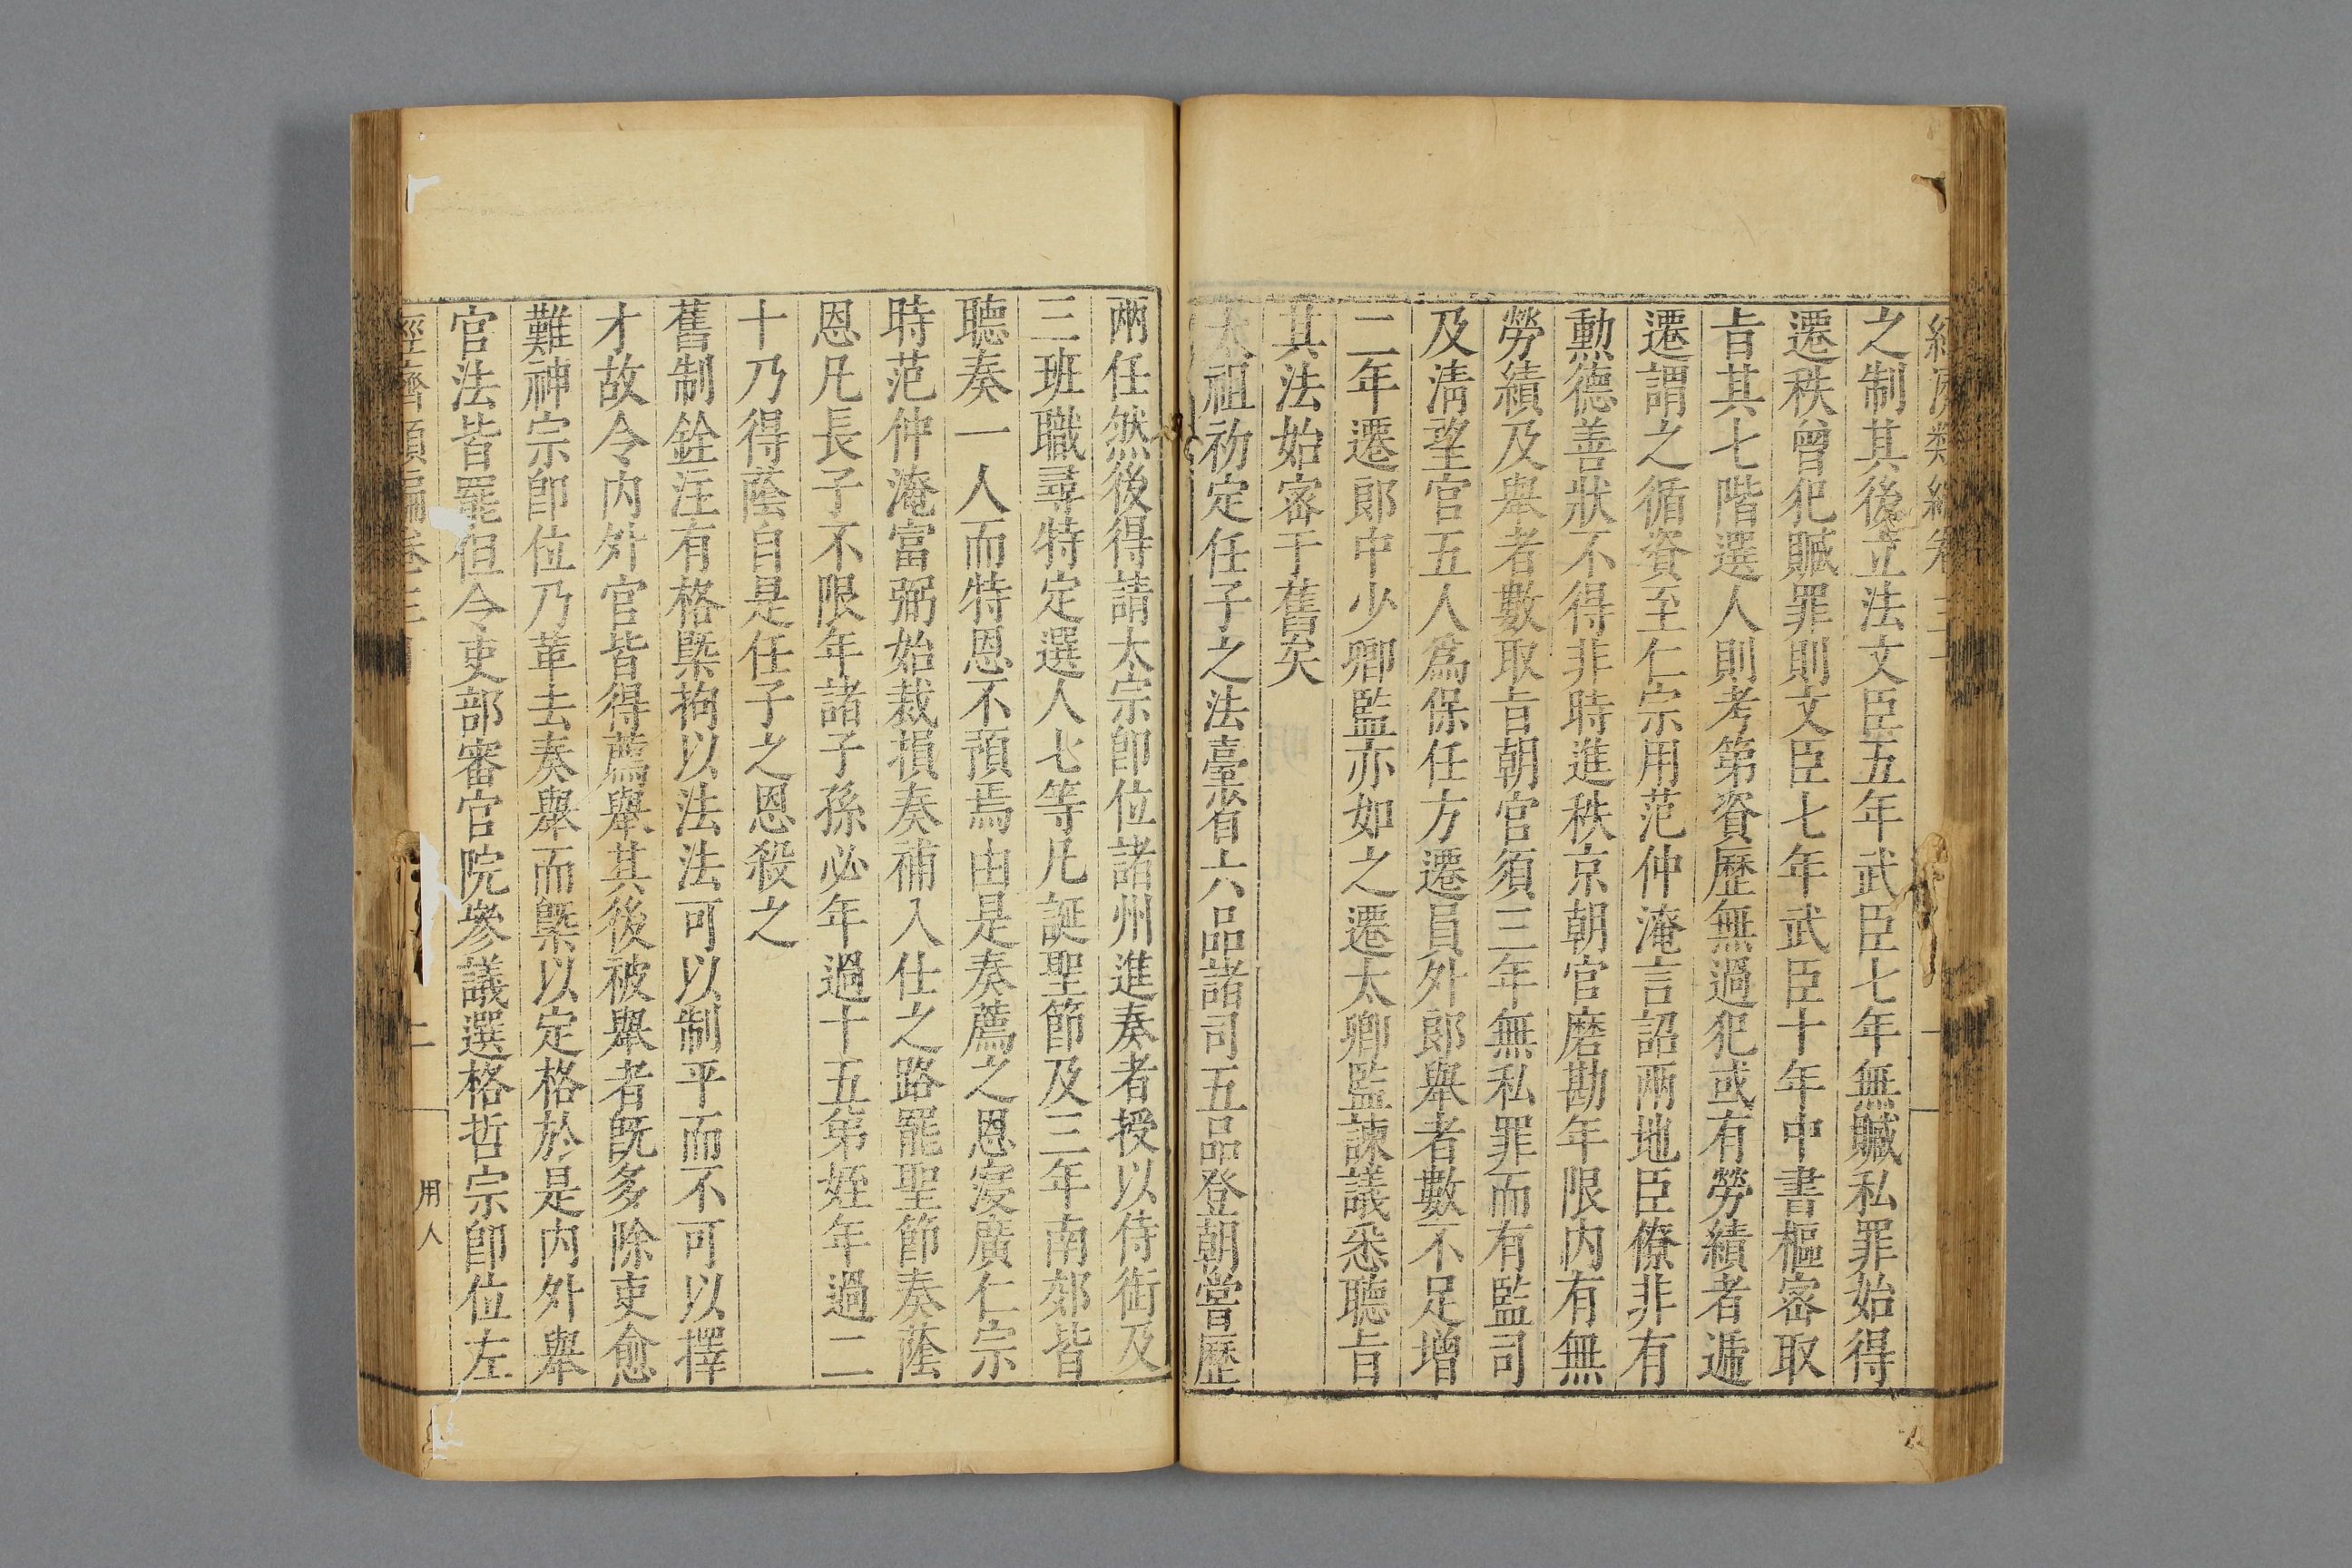 之制其後立法文臣五年武臣七年無贓私罪始得
遷秩曾犯贓罪則文臣七年武臣十年中書樞宻取
㫖其七階選人則考第資歷無過犯或有勞績者遞
遷謂之循資至仁宗用范仲淹言詔兩地臣僚非有
勲德善狀不得非時進秩京朝官磨勘年限内有無
勞績及舉者數取㫖朝官須三年無私罪而有監司
及清望官五人爲保任方遷員外郎舉者數不足增
二年遷郎中少卿監亦如之遷太卿監諫議悉聽㫖
其法始宻于舊矣
太祖初定任子之法臺省六品諸司五品登朝嘗歷
兩任然後得請太宗卽位諸州進奏者授以侍銜及
三班職尋特定選人七等凡誕聖節及三年南郊皆
聽奏一人而特恩不預焉由是奏薦之恩寖廣仁宗
時范仲淹富弼始裁損奏補入仕之路罷聖節奏蔭
恩凡長子不限年諸子孫必年過十五第姪年過二
十乃得蔭自是任子之恩殺之
舊制銓注有格槩拘以法法可以制平而不可以擇
才故令内外官皆得薦舉其後被舉者既多除吏愈
難神宗卽位乃革去奏舉而槩以定格於是内外舉
官法皆罷但令吏部審官院參議選格哲宗卽位左
經濟類編卷三
二
用人